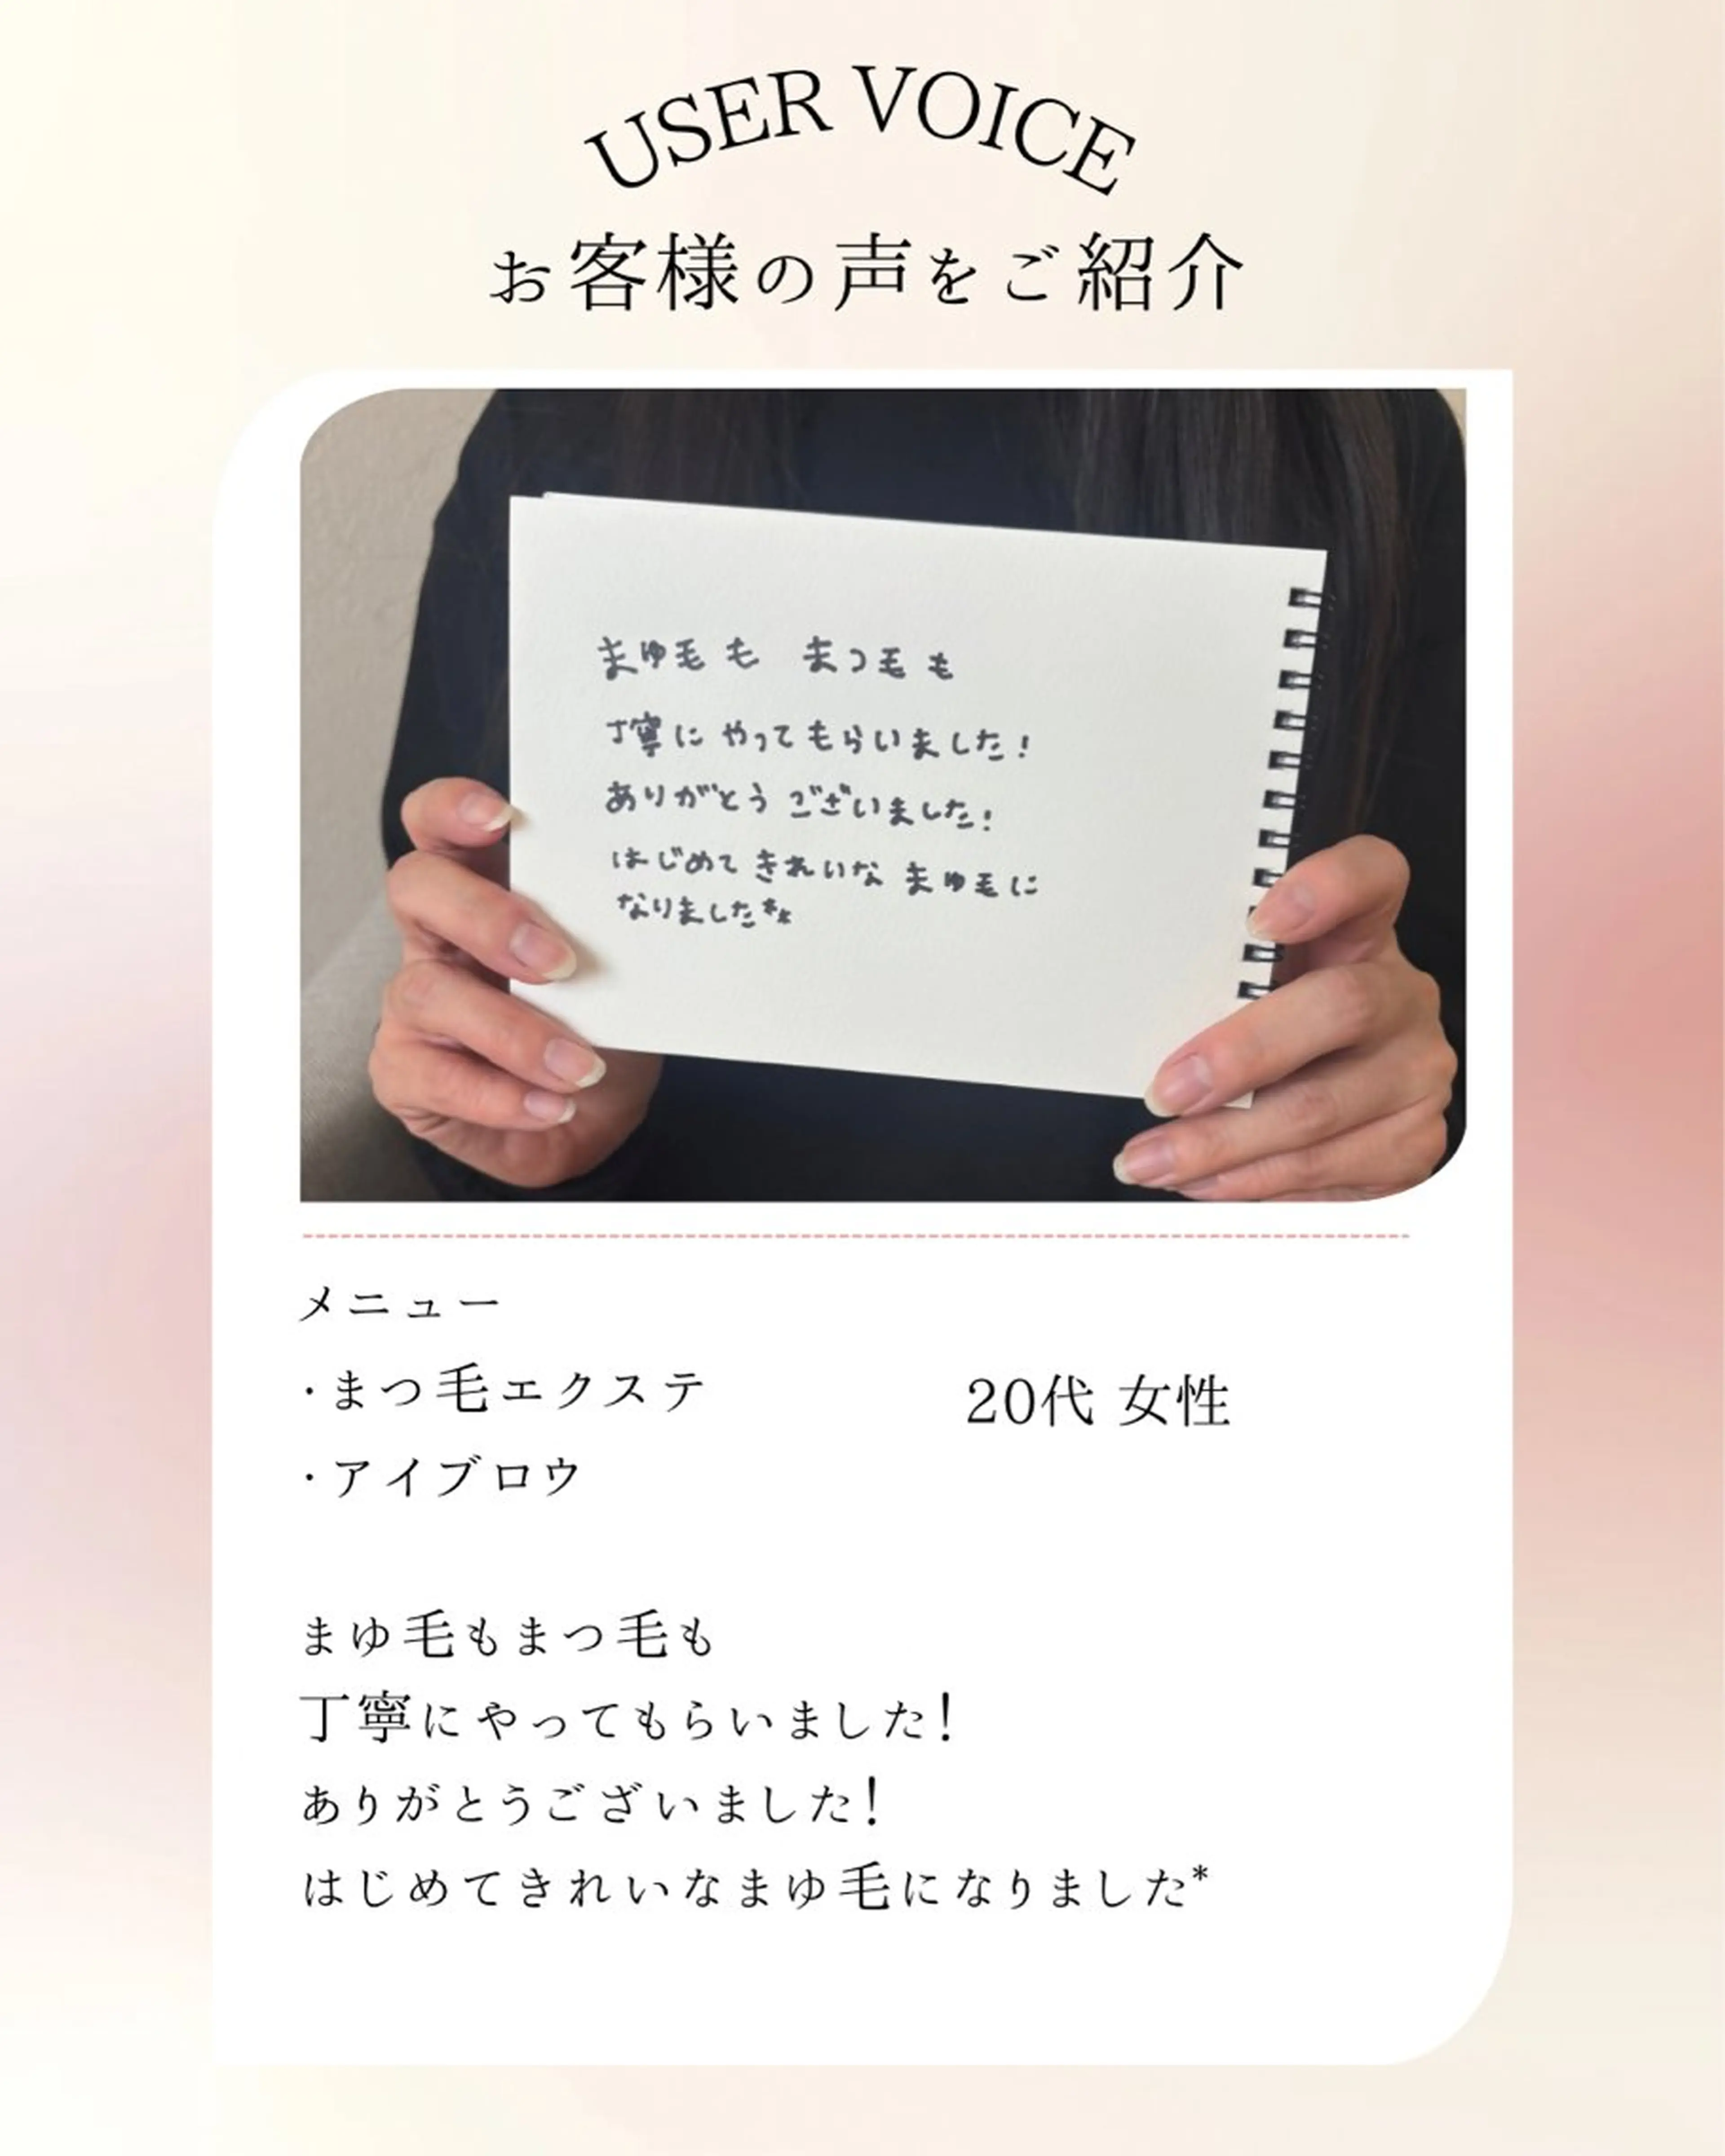 USER VOICE
お客様の声をご紹介
まゆ毛も まつ毛も
丁寧に やってもらいました!
ありがとう ございました!
はじめて きれいな まゆ毛に
なりました**
メニュー
・まつ毛エクステ
20代 女性
・アイブロウ
まゆ毛もまつ毛も
丁寧にやってもらいました!
ありがとうございました!
はじめてきれいなまゆ毛になりました*